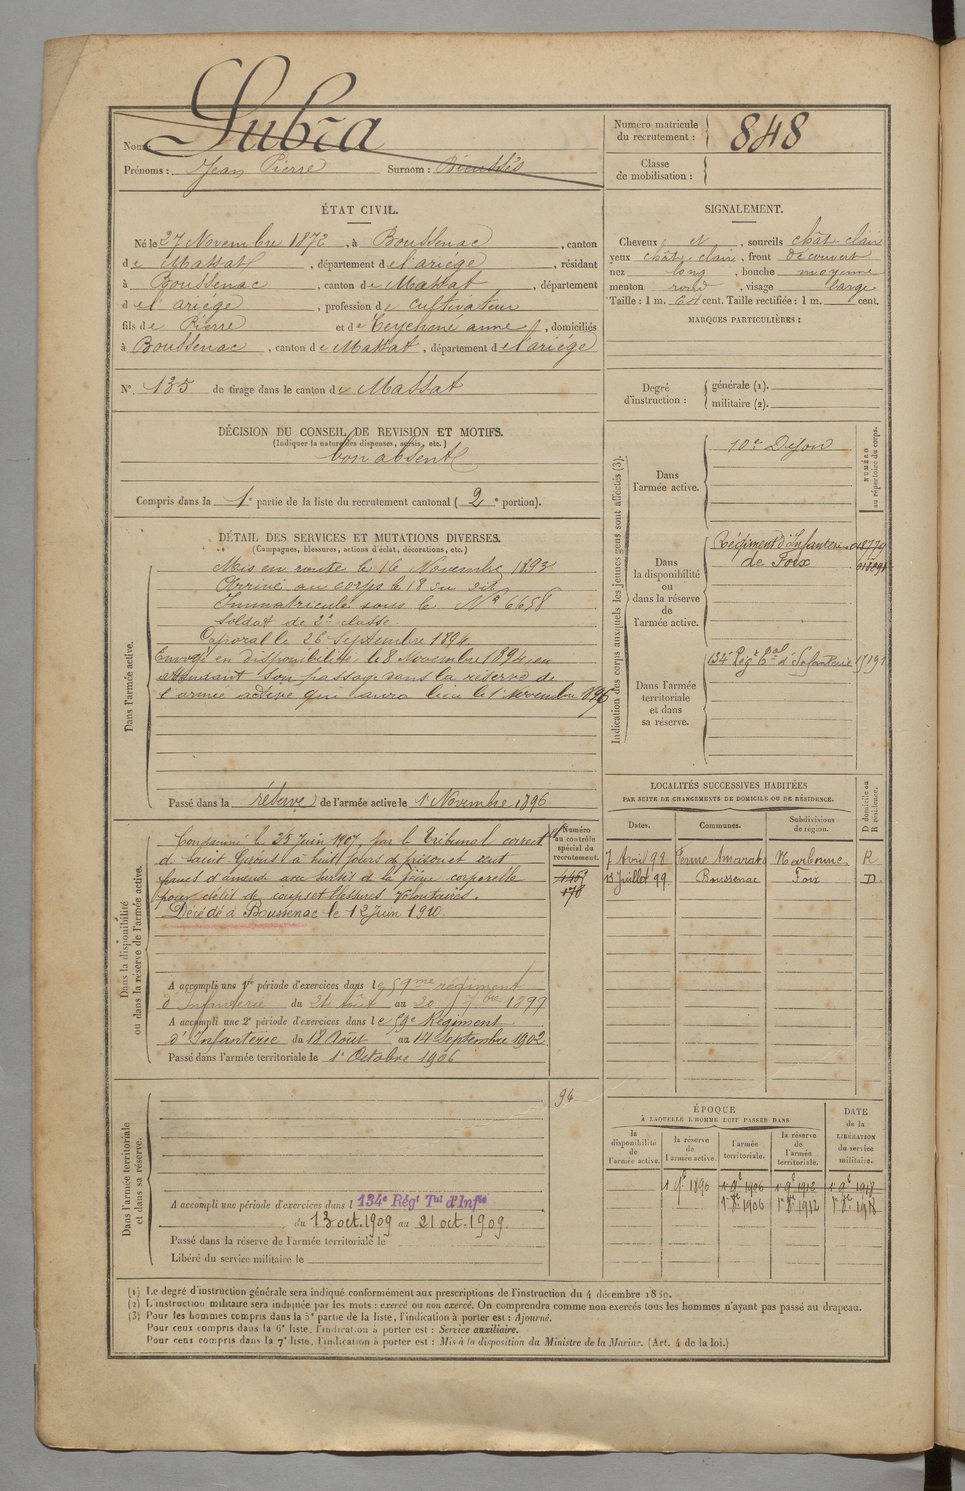 Nom: Lubra
Prénoms: Jean Pierre Surnom:
Numéro matricule du recrutement: 848
Classe de mobilisation:
ÉTAT CIVIL.
Né le 27 Novembre 1872, à Boussenac, canton
de Massat, département de l'ariége, résidant
à Boussenac, canton de Massat, département
de l'ariége, profession de cultivateur
fils de Pierre et de Teychené anne, domiciliés
à Boussenac, canton de Massat, département de l'ariége
N° 135 de tirage dans le canton de Massat
SIGNALEMENT.
Cheveux et, sourcils chât. clair
yeux chât. clair, front découvert
nez long, bouche moyenne
menton rond, visage large
Taille: 1 m. cent. Taille rectifiée: 1 m. cent.
MARQUES PARTICULIÈRES:
Degré d'instruction: générale (1).
militaire (2).
DÉCISION DU CONSEIL DE REVISION ET MOTIFS.
(Indiquer la nature des dispenses, sursis, etc.)
bon absent
Compris dans la 1e partie de la liste du recrutement cantonal (2e portion).
DÉTAIL DES SERVICES ET MUTATIONS DIVERSES.
(Campagnes, blessures, actions d'éclat, décorations, etc.)
Dans l'armée active.
Mis en route le 16 Novembre 1893
Arrivé au corps le 18 du dit
Immatriculé sous le N° 6658
Soldat de 2e classe.
Caporal le 26 Septembre 1894
Envoyé en disponibilité le 8 Novembre 1894 en
attendant son passage dans la réserve de
l'armée active qui aura lieu le 1r Novembre 1896
Passé dans la réserve de l'armée active le 1r Novembre 1896
Indication des corps auxquels les jeunes gens sont affectés (3).
NUMÉRO au répertoire du corps.
Dans l'armée active.
10e
Dans la disponibilité ou dans la réserve de l'armée active.
Régiment d'Infanterie
de Foix
Dans l'armée territoriale et dans sa réserve.
134e Régt Tal d'Infanterie
LOCALITÉS SUCCESSIVES HABITÉES
PAR SUITE DE CHANGEMENTS DE DOMICILE OU DE RÉSIDENCE.
Dates. Communes. Subdivisions de région. D domicile ou R résidence.
7 Avril 99 Narbonne R
13 Juillet 99. Boussenac Foix D
Dans la disponibilité ou dans la réserve de l'armée active.
Numéro au contrôle spécial du recrutement.
178
Condamné le 25 Juin 1907, par le Tribunal correctel
de Saint Girons à huit jours de prison et cent
francs d'amende avec sursis de la peine corporelle
pour délit de coups et blessures volontaires.
Décédé à Boussenac le 12 Juin 1910.
A accompli une 1re période d'exercices dans le 59me régiment
d'Infanterie du 24 août au 20 7bre 1899
A accompli une 2e période d'exercices dans le 59e Régiment
d'Infanterie du 18 Août au 14 Septembre 1902
Passé dans l'armée territoriale le 1r Octobre 1906
Dans l'armée territoriale et dans sa réserve.
94
A accompli une période d'exercices dans l 134e Régt Tal d'Infie
du 13 oct. 1909 au 21 oct. 1909.
Passé dans la réserve de l'armée territoriale le
Libéré du service militaire le
ÉPOQUE
À LAQUELLE L'HOMME DOIT PASSER DANS
la disponibilité de l'armée active. la réserve de l'armée active. l'armée territoriale. la réserve de l'armée territoriale.
DATE de la LIBÉRATION du service militaire.
(1) Le degré d'instruction générale sera indiqué conformément aux prescriptions de l'instruction du 4 décembre 1889.
(2) L'instruction militaire sera indiquée par les mots: exercé ou non exercé. On comprendra comme non exercés tous les hommes n'ayant pas passé au drapeau.
(3) Pour les hommes compris dans la 5e partie de la liste, l'indication à porter est: Ajourné.
Pour ceux compris dans la 6e liste, l'indication à porter est: Service auxiliaire.
Pour ceux compris dans la 7e liste, l'indication à porter est: Mis à la disposition du Ministre de la Marine. (Art. 4 de la loi.)